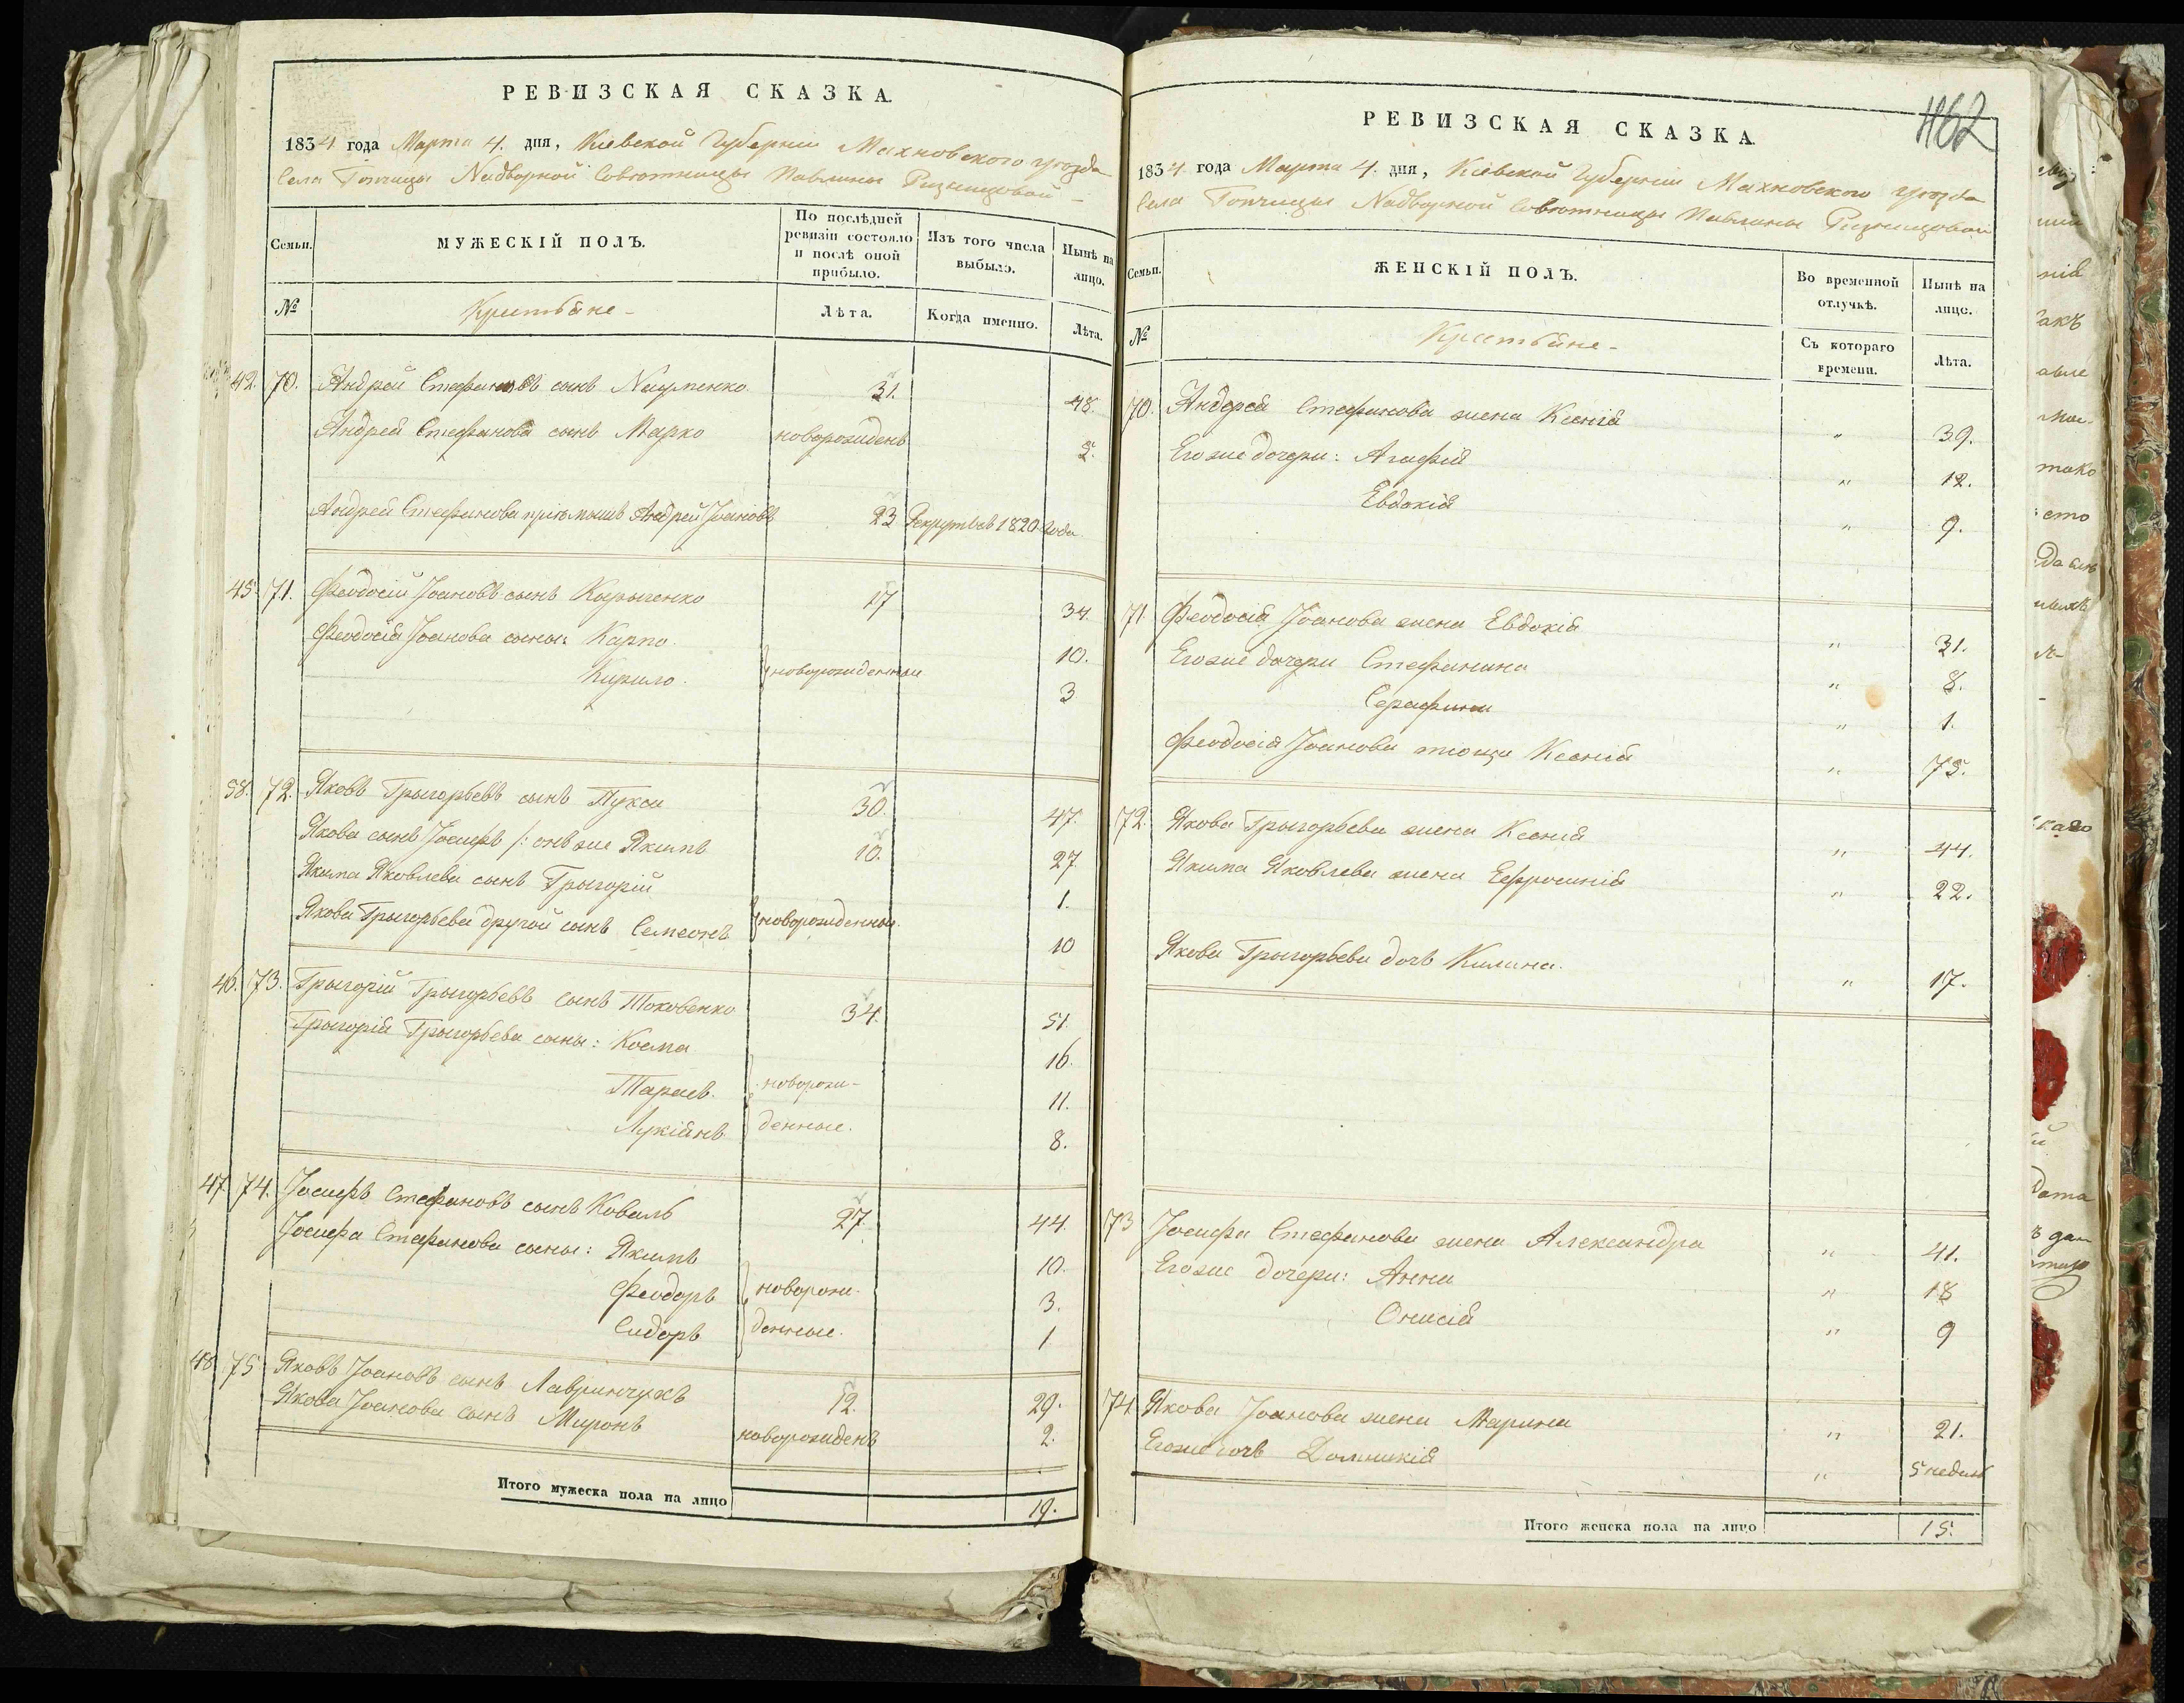 РЕВИЗСКАЯ СКАЗКА.
1834 года Марта 4. дня, Кіевской Губерніи Махновского уезда
Села Топчицы Надворной Совютницы Павлины Ризницовой
Семьи. МУЖЕСКІЙ ПОЛЪ. По послѣдней ревизіи состояло и послѣ оной прибыло. Изъ того числа выбыло. Нынѣ на лицо.
№ Крестьяне - Лѣта. Когда именно. Лѣта.
42. 70. Андрей Стефановъ сынъ Науменко 31. 48.
Андрея Стефанова сынъ Марко новорожденъ 2.
Андрея Стефанова пріемышъ Андрей Іоановъ 23 Рекрутъ в 1820 года
45. 71. Феодосій Іоановъ сынъ 17 34.
Феодосія Іоанова сыны: Карпо 10.
Кирило. новорожденные 3
58. 72. Яковъ Григорьевъ сынъ Пукси 30. 47.
Якова сынъ Іосифъ /: онъ же Якимъ 10. 27.
Якима Яковлева сынъ Григорій 1.
Якова Григорьева другой сынъ Семеонъ новорожденные. 10
46. 73. Григорій Григорьевъ сынъ Токовенко 34. 51.
Григорія Григорьева сыны: Косма 16.
Тарасъ. новорож- 11.
Лукіянъ денные. 8.
47. 74. Іосифъ Стефановъ сынъ Коваль 27. 44.
Іосифа Стефанова сыны: Якимъ 10.
Феодоръ новорож- 3.
Сидоръ денные. 1
48. 75 Яковъ Іоановъ сынъ Лавринчукъ 12. 29.
Якова Іоанова сынъ Миронъ новорожденъ 2.
Итого мужеска пола на лицо 19.
462
РЕВИЗСКАЯ СКАЗКА.
1834 года Марта 4. дня, Кіевской Губерніи Махновского уезда
Села Топчицы Надворной Совютницы Павлины Ризницовой
Семьи. ЖЕНСКІЙ ПОЛЪ. Во временной отлучкѣ. Нынѣ на лицо.
№ Крестьяне - Съ котораго времени. Лѣта.
70. Андрея Стефанова жена Ксенія " 39.
Его же дочери: Агафія " 12.
Евдокія " 9.
71. Феодосія Іоанова жена Евдокія " 31.
Его же дочери Стефанина " 8.
Серафина " 1.
Феодосія Іоанова тюща Ксенія " 75.
72. Якова Григорьева жена Ксенія " 44.
Якима Яковлева жена Ефросинія " 22.
Якова Григорьева дочь Килина. " 17.
73 Іосифа Стефанова жена Александра " 41.
Его же дочери: Анна " 18
Онисія " 9
74. Якова Іоанова жена Марина " 21.
Его же дочь Домникія " 5 недель
Итого женска пола на лицо 15.